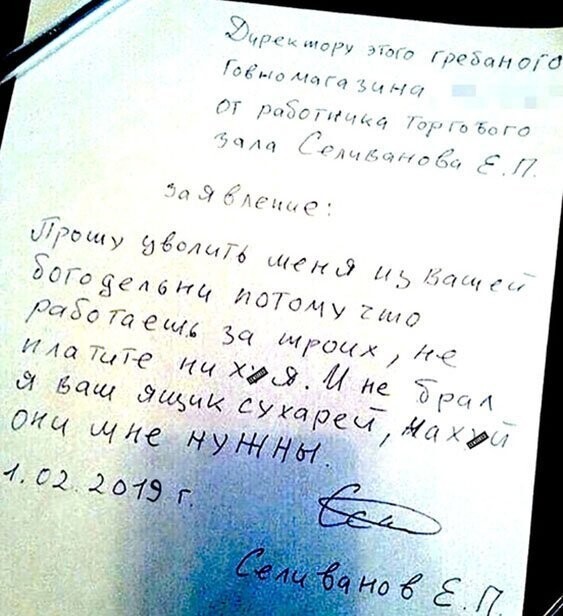 Директору этого гребаного
Говномагазина
От работника торгового
зала Селиванова Е.П.
заявление:
Прошу уволить меня из вашей
богодельни потому что
работаешь за троих, не
платите ни ху я. И не брал
я ваш ящик сухарей, нахуй
они мне нужны.
1.02.2019 г.
Селиванов Е.П.